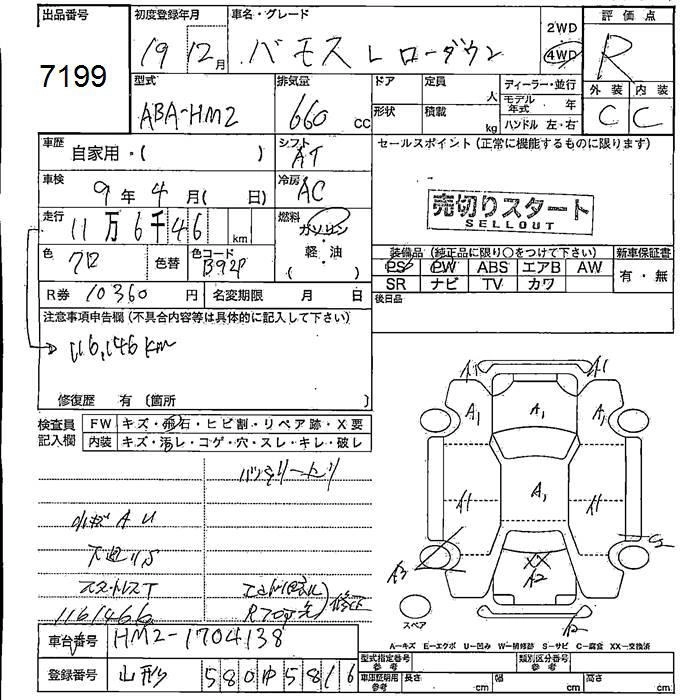 出品番号
7199
初度登録年月
19 12月
車名・グレード
バモス L ローダウン
2WD
4WD
評価点
R
外装 内装
C C
型式
ABA-HM2
排気量
660 cc
ドア
定員
人
形状
積載
kg
ディーラー・並行
モデル年式 年
ハンドル 左・右
車歴
自家用・( )
シフト
AT
セールスポイント (正常に機能するものに限ります)
車検
9年 4月( 日)
冷房
AC
売切りスタート
SELLOUT
走行
11万6千146 km
燃料
ガソリン
・
軽油
( )
色
クロ
色替
色コード
B92P
装備品 (純正品に限り○をつけて下さい)
新車保証書
PS PW ABS エアB AW
有・無
SR ナビ TV カワ
R券 10360円
名変期限 月 日
後日品
注意事項申告欄 (不具合内容等は具体的に記入して下さい)
116,146km
修復歴 有 (箇所 )
検査員記入欄
FW キズ・飛石・ヒビ割・リペア跡・X要
内装 キズ・汚レ・コゲ・穴・スレ・キレ・破レ
小キズ A U
下廻りS
スタッドレスT
116146
修正
A1 A1
A1 A1 A1
A1 A1 A1
A3
XX
A2
スペア
A-キズ E-エクボ U-凹み W-補修跡 S-サビ C-腐食 XX-交換済
車台番号 HM2-1704138
登録番号 山形 580 ゆ 5816
型式指定番号 参考
類別区分番号 参考
車庫証明用 参考
長さ cm
幅 cm
高さ cm